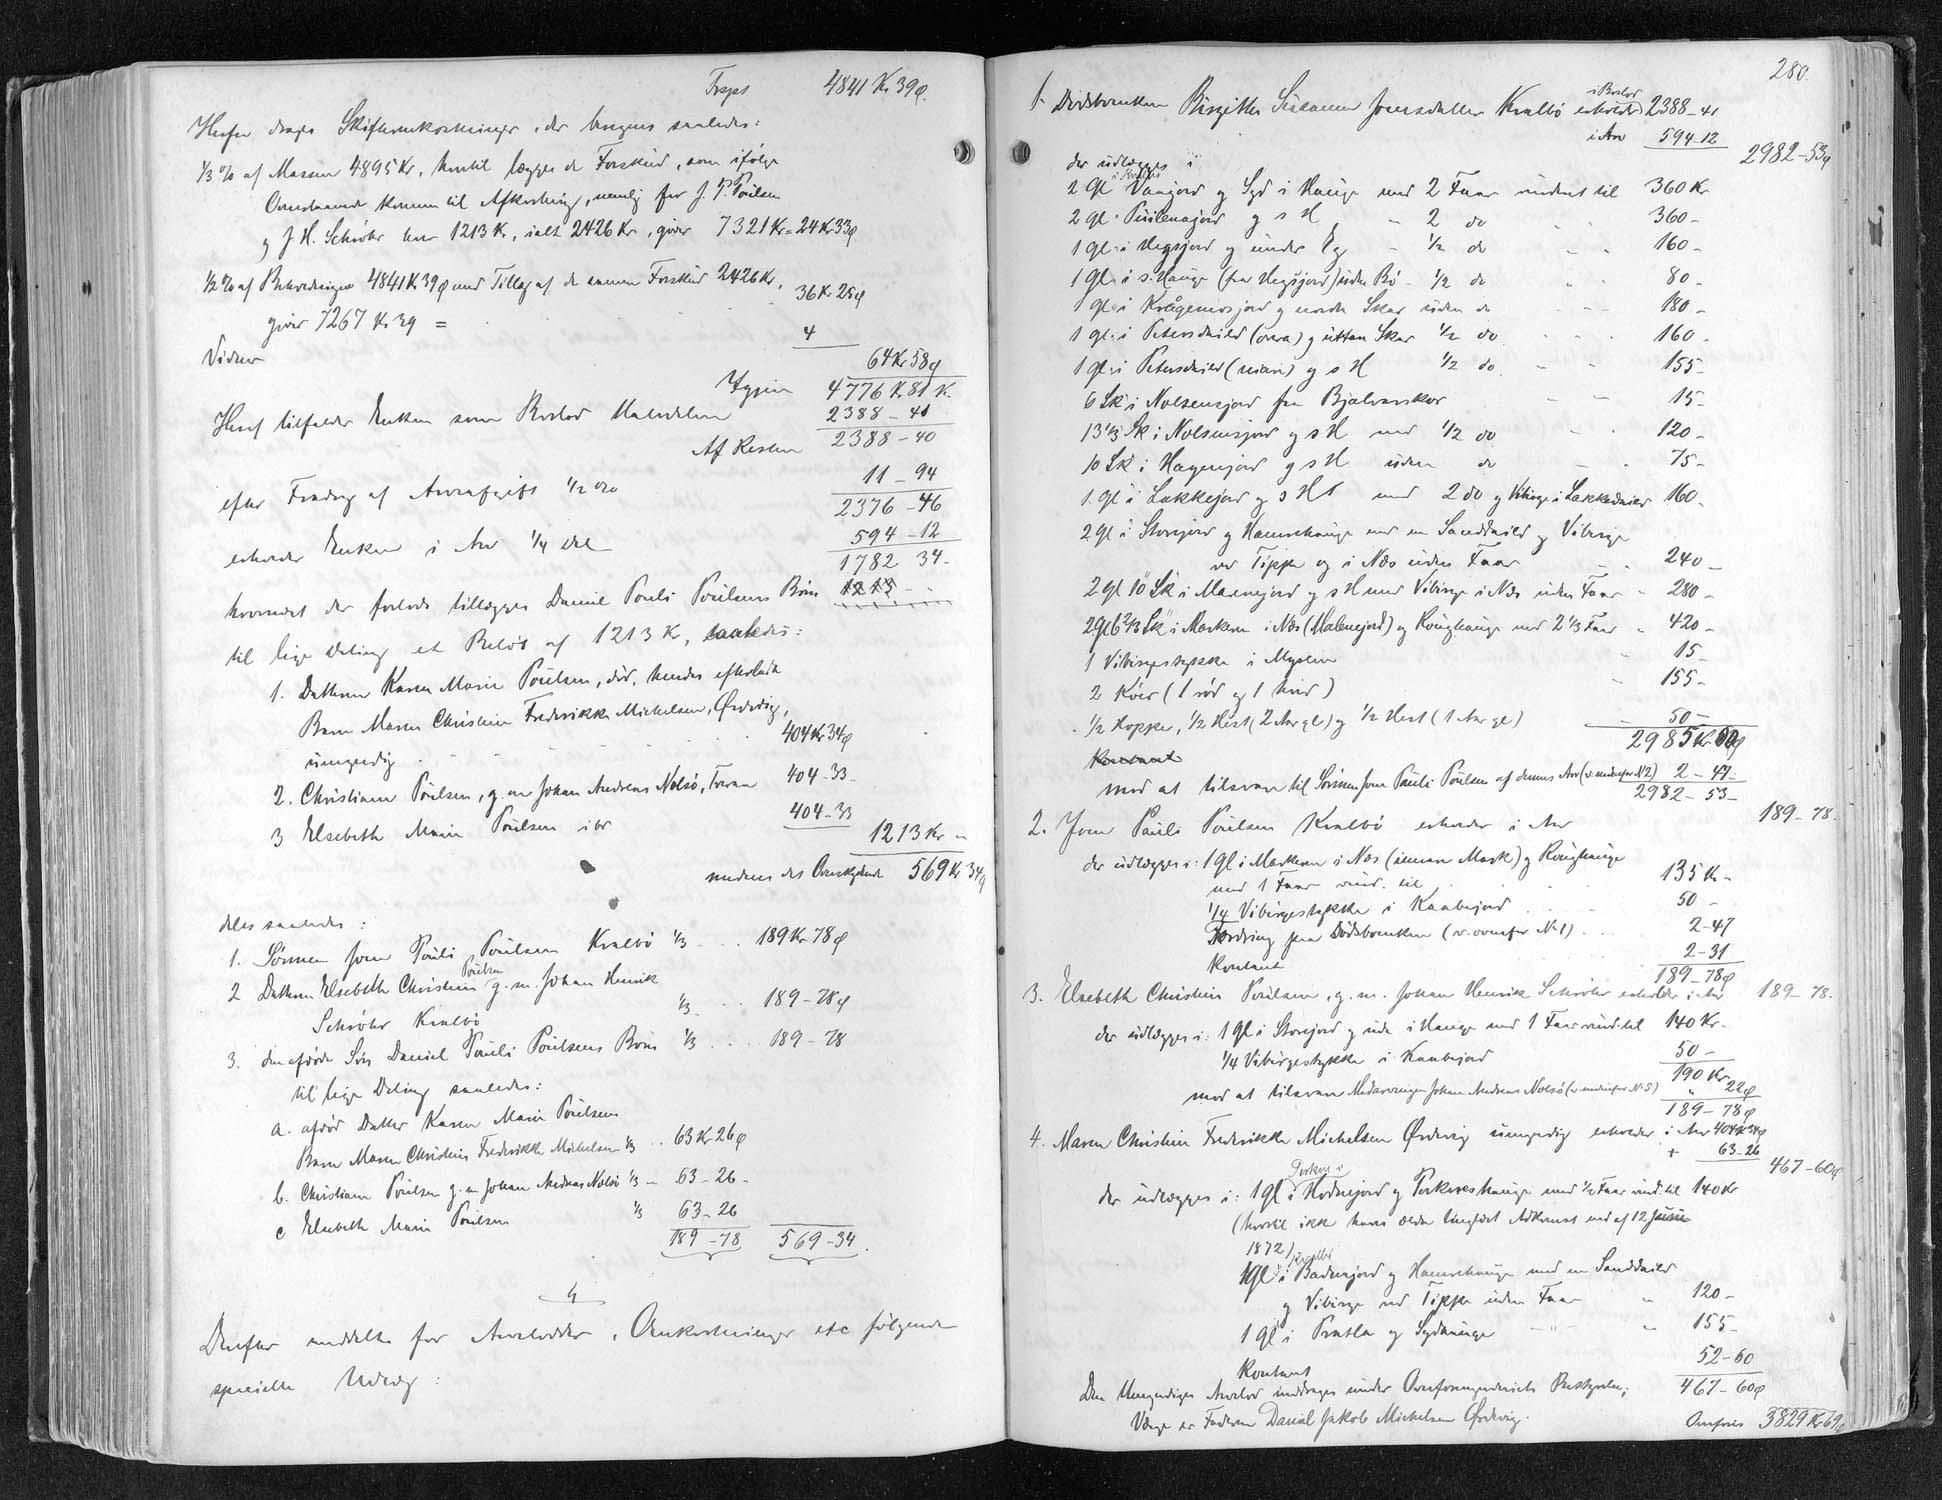 Trspt 4841 Kr 39 ø.
Herfra drages Skifteomkostninger, der beregnes saaledes:
1/3 % af Massen 4895 Kr, hvortil lægges de Forskud, som ifølge
Ovenstaaende kommer til Afkortning, nemlig for J. P. Poulsen
og J. H. Schröter hver 1213 Kr, ialt 2426 Kr, giver 7321 Kr = 24 Kr 33 ø
1/2 % af Beholdningen 4841 Kr 39 ø med Tillæg af de samme Forskud 2426 Kr,
giver 7267 Kr 39 = 36 Kr 25 ø
Vidner 4
64 Kr 58 ø
Igjen 4776 Kr 81 K.
Heraf tilfalder Enken som Boslod Halvdelen 2388 - 41
Af Resten 2388 - 40
efter Fradrag af Arveafgift 1/2 % 11 - 94
2376 - 46
erholder Enken i Arv 1/4 Del 594 - 12
1782 34 -
hvoraf der forlods tillægges Daniel Pouli Poulsens Børn 1213 - -
til lige Deling et Beløb af 1213 Kr, saaledes:
1. Datteren Karen Marie Poulsen, død, hendes efterladte
Barn Maren Christine Frederikke Michelsen, Ørdevig,
umyndig 404 Kr 34 ø
2. Christiane Poulsen, g. m. Johan Andreas Nolsö, Tveraa 404 - 33 -
3 Elsebeth Marie Poulsen ibr 404 - 33
1213 Kr "
medens det Overskydende 569 Kr 34 ø
deles saaledes:
1. Sönnen Joen Pouli Poulsen Kvalbö 1/3 . . 189 Kr 78 ø
2 Datteren Elsebeth Christine Poulsen g. m. Johan Henrik
Schröter Kvalbö 1/3 . . 189 - 78 ø
3. den afdøde Søn Daniel Pouli Poulsens Børn 1/3 . . . 189 - 78
til lige Deling saaledes:
a. afdød Datter Karen Marie Poulsens
Barn Maren Christine Frederikke Michelsen 1/3 . . 63 Kr 26 ø
b. Christiane Poulsen g. m Johan Andreas Nolsö 1/3 - 63 - 26 -
c Elsebeth Marie Poulsen 1/3 63 - 26
189 - 78 569 - 34.
4
Derefter meddeltes for Arvelodder, Omkostninger etc følgende
specielle Udlæg:
280.
1. Dødsboenken Birgitte Susanne Joensdatter Kvalbö erholder i Boslod 2388 - 41
i Arv 594 - 12
2982 - 53 ø
der udlægges i
2 Gl i Kvalbø Vaajord og Syd i Hauge med 2 Faar vurderet til 360 Kr
2 gl. Puilenajord og s H - 2 do 360 -
1 gl i Hegsjord og under Eg - 1/2 do 160 -
1 Gl. i s. Hauge (fra Hegsjord) uden Bö - 1/2 do 80 -
1 gl i Krågerusjord og norde Skar uden do 180 -
1 gl. i Petersdeild (ovara) og uttan Skar 1/2 do 160 -
1 gl. i Petersdeild (niari) og s H 1/2 do 155 -
6 Sk i Nolsensjord fra Bjalvarskor 15 -
13 1/3 Sk i Nolsensjord og s H med 1/2 do 120 -
10 Sk i Hagenjord og s H uden do 75 -
1. gl i Lakkejord og s H med 2 do og Vibirge i Lakkedeild 160 -
2 gl i Storejord og Hamrehauge med en Sanddeild og Vibirge
ved Tippe og i Næs uden Faar 240 -
2 gl 10 Sk i Malenejord og s H med Vibirge i Næs uden Faar 280 -
2 gl 6 2/3 Sk i Marken i Næs (Malenejord) og Roughauge med 2 1/3 Faar 420 -
1 Vibirgestykke i Myren 15 -
2 Köer (1 rød og 1 hvid) 155 -
1/2 Hoppe, 1/2 Hest (2 Aar gl) og 1/2 Hest (1 Aar gl) 50 -
2985 Kr 00 ø
Kontant
mod at tilsvare til Sønnen Joen Pouli Poulsen af dennes Arv (v. nedenfor N 2) 2 - 47 -
2982 - 53 -
2. Joen Pouli Poulsen Kvalbö erholder i Arv 189 - 78.
der udlægges i: 1 gl i Marken i Næs (innan Mark) og Roughauge
med 1 Faar vurd. til 135 Kr -
1/4 Vibirgestykke i Kaabejord 50 -
Fordring paa Dödsboenken (v. ovenfor N 1) 2 - 47
Kontant 2 - 31
189 - 78 ø
3. Elsebeth Christine Poulsen, g. m. Johan Henrik Schröter erholder i Arv 189 - 78.
der udlægges i: 1 gl i Storejord og ude i Hauge med 1 Faar vurd. til 140 Kr -
1/4 Vibirgestykke i Kaabejord 50 -
190 Kr
mod at tilsvare Medarvingen Johan Andreas Nolsö (v. nedenfor N 5) " 22 ø
189 - 78 ø
4. Maren Christine Frederikke Michelsen Ørdevig umyndig erholder i Arv 404 Kr 34 ø
+ 63 - 26
467 - 60 ø
der udlægges i: 1 gl i Hodnejord og Porkereshauge med 1/2 Faar vurd. til 140 Kr
(hvortil ikke haves ældre tinglæst Adkomst end af 12 Juni
1872)
1 gl i Badnejord og Hamrehauge med en Sanddeild
og Vibirge ved Tippe uden Faar 120 -
1 gl i Pratla og Sydhauge 155 -
Kontant 52 - 60
467 - 60 ø
Den Umyndiges Arvelod inddrages under Overformynderiets Bestyrelse;
Værge er Faderen Daniel Jakob Michelsen Ørdevig.
Overføres 3829 Kr 69 ø